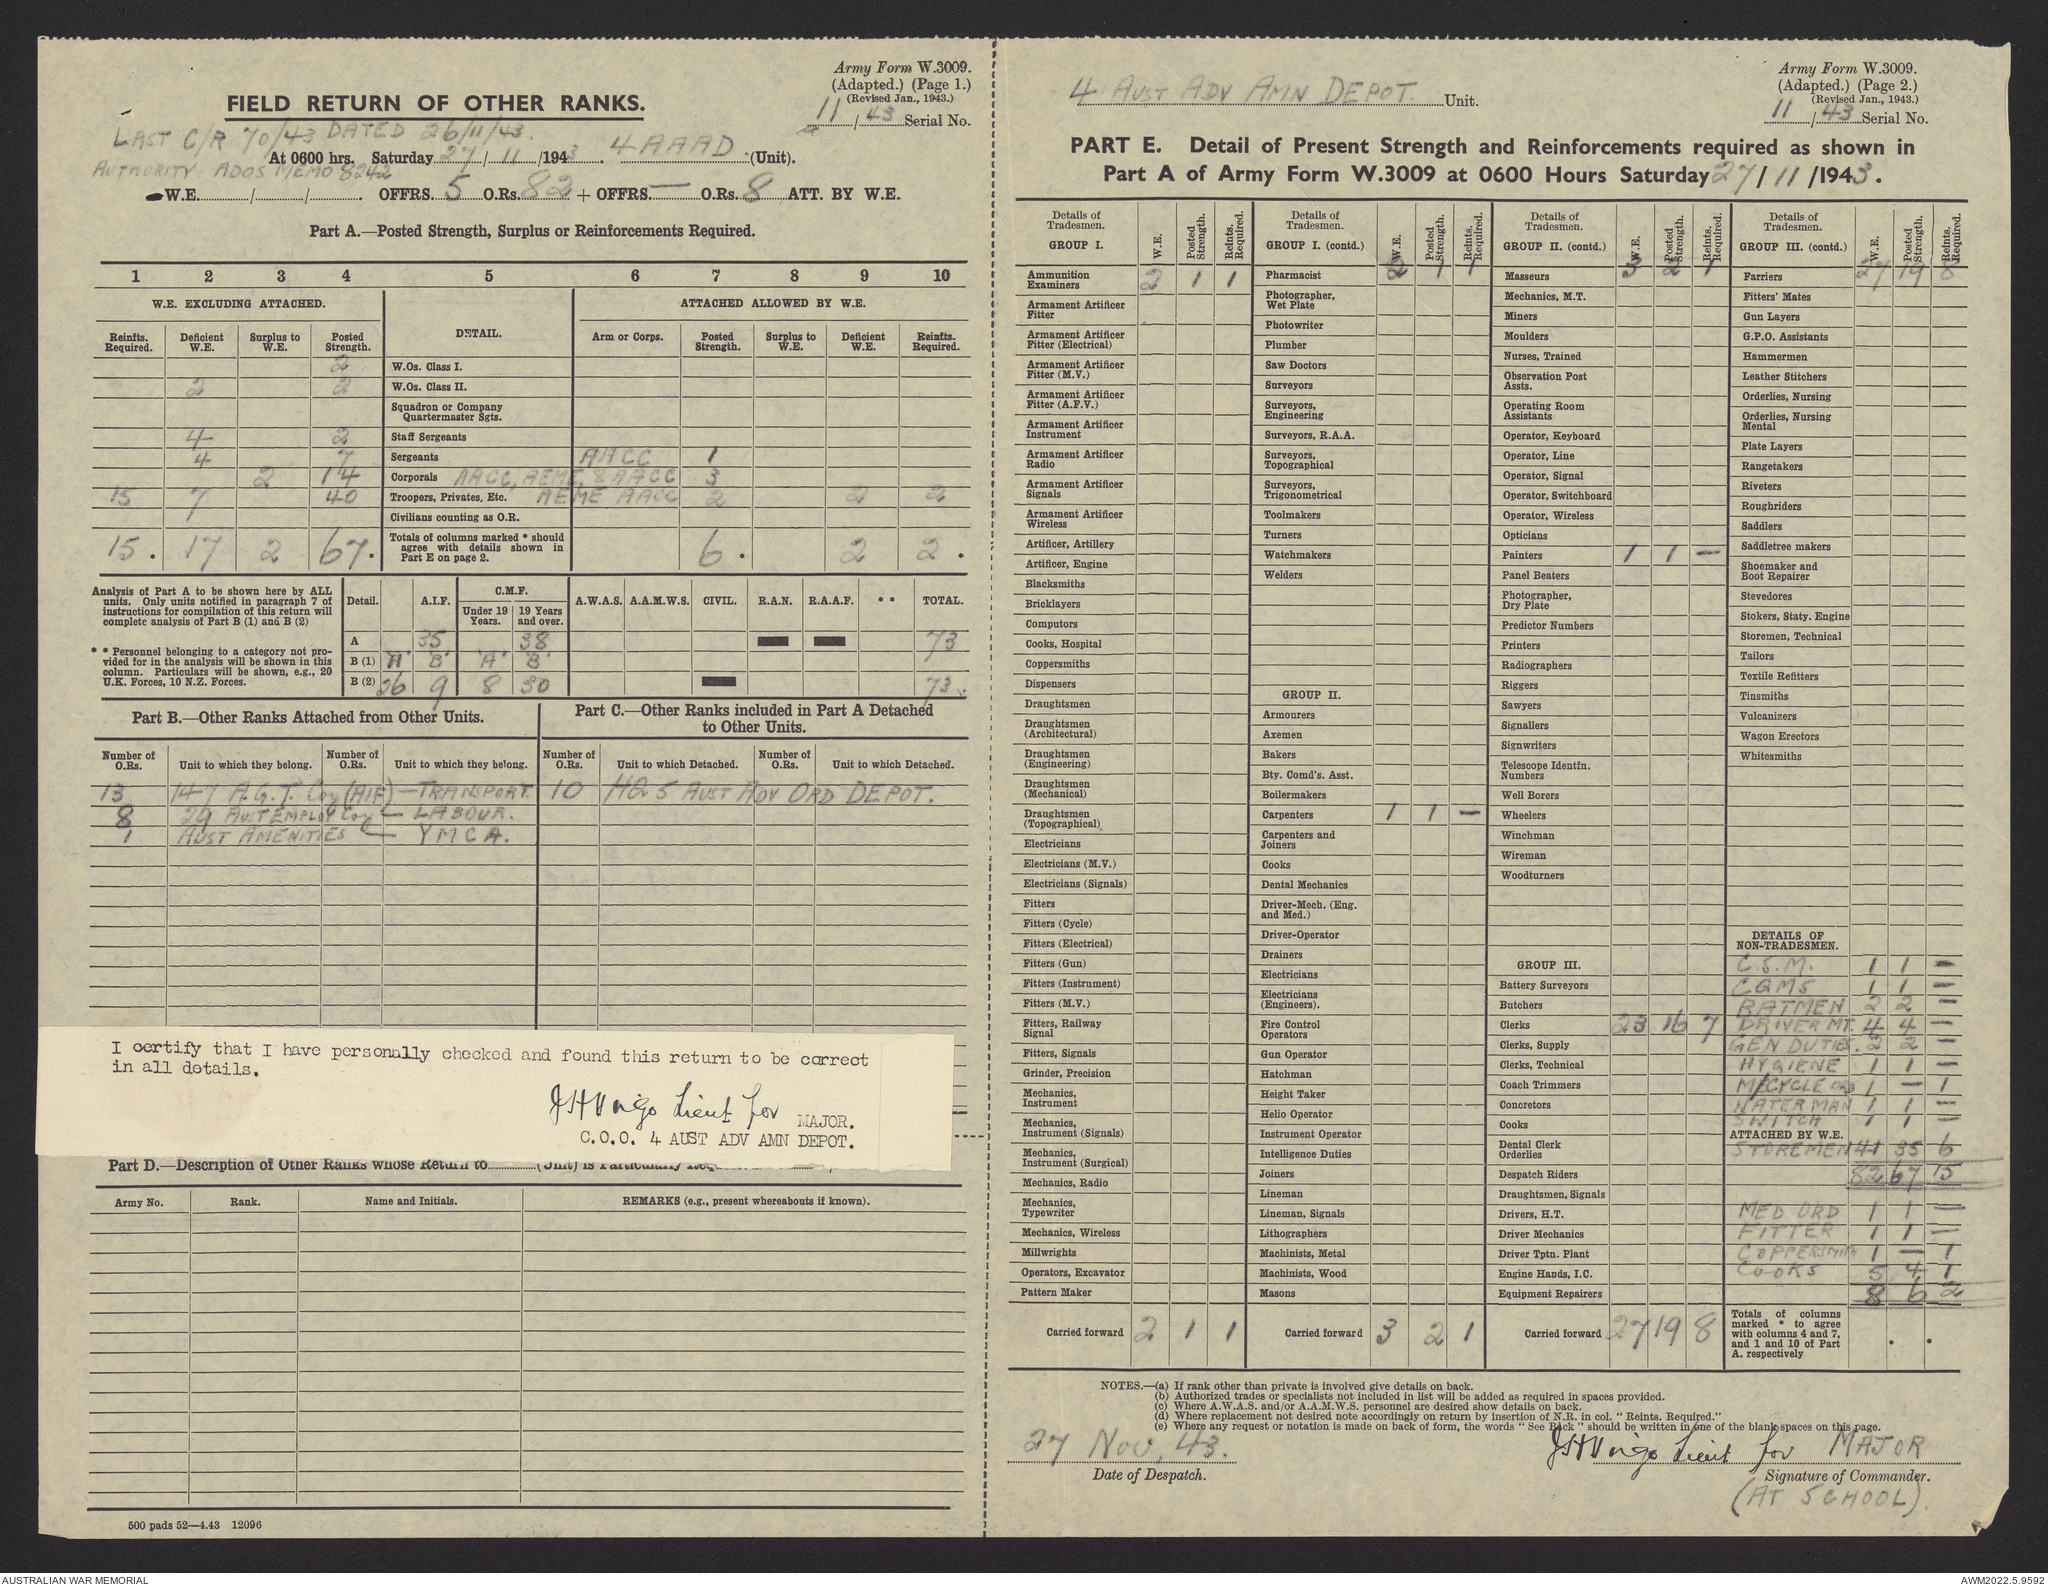 Army Form W.3009.
(Adapted.) (Page 1.)
(Revised Jan., 1943.)
11 / 43 Serial No.
FIELD RETURN OF OTHER RANKS.
LAST C/R 70/43 DATED 26/11/43.
At 0600 hrs. Saturday 27 / 11 /1943. 4 AAAD (Unit).
AUTHORITY ADOS MEMO 8242
W.E. / / . OFFRS. 5 O.Rs. 82 + OFFRS. — O.Rs. 8 ATT. BY W.E.
Part A.—Posted Strength, Surplus or Reinforcements Required.
1 2 3 4 5 6 7 8 9 10
W.E. EXCLUDING ATTACHED. DETAIL. ATTACHED ALLOWED BY W.E.
Reinfts. Required. Deficient W.E. Surplus to W.E. Posted Strength. Arm or Corps. Posted Strength. Surplus to W.E. Deficient W.E. Reinfts. Required.
2 W.Os. Class I.
2 2 W.Os. Class II.
Squadron or Company Quartermaster Sgts.
4 2 Staff Sergeants
4 7 Sergeants AACC 1
2 14 Corporals AACC, AEME, & AACC 3
15 7 40 Troopers, Privates, Etc. AEME AACC 2 2 2
Civilians counting as O.R.
15. 17 2 67. Totals of columns marked * should agree with details shown in Part E on page 2. 6. 2 2.
Analysis of Part A to be shown here by ALL units. Only units notified in paragraph 7 of instructions for compilation of this return will complete analysis of Part B (1) and B (2)
* * Personnel belonging to a category not provided for in the analysis will be shown in this column. Particulars will be shown, e.g., 20 U.K. Forces, 10 N.Z. Forces.
Detail. A.I.F. C.M.F. Under 19 Years. 19 Years and over. A.W.A.S. A.A.M.W.S. CIVIL. R.A.N. R.A.A.F. * * TOTAL.
A 35 38 73
B (1) 'A' 'B' 'A' 'B'
B (2) 26 9 8 30 73
Part B.—Other Ranks Attached from Other Units.
Part C.—Other Ranks included in Part A Detached to Other Units.
Number of O.Rs. Unit to which they belong. Number of O.Rs. Unit to which they belong. Number of O.Rs. Unit to which Detached. Number of O.Rs. Unit to which Detached.
13 147 A.G.T. Coy (AIF) — TRANSPORT. 10 HQ 5 AUST ADV ORD DEPOT.
8 29 AUST EMPLOY Coy — LABOUR.
1 AUST AMENITIES — YMCA.
I certify that I have personally checked and found this return to be correct
in all details.
Lieut for MAJOR.
C.O.O. 4 AUST ADV AMN DEPOT.
Part D.—Description of Other Ranks whose Return to (Unit) is Particularly
Army No. Rank. Name and Initials. REMARKS (e.g., present whereabouts if known).
500 pads 52—4.43 12096
Army Form W.3009.
(Adapted.) (Page 2.)
(Revised Jan., 1943.)
11 / 43 Serial No.
4 AUST ADV AMN DEPOT. Unit.
PART E. Detail of Present Strength and Reinforcements required as shown in
Part A of Army Form W.3009 at 0600 Hours Saturday 27 / 11 /1943.
Details of Tradesmen. W.E. Posted Strength. Reints. Required.
GROUP I.
Ammunition Examiners 2 1 1
Armament Artificer Fitter
Armament Artificer Fitter (Electrical)
Armament Artificer Fitter (M.V.)
Armament Artificer Fitter (A.F.V.)
Armament Artificer Instrument
Armament Artificer Radio
Armament Artificer Signals
Armament Artificer Wireless
Artificer, Artillery
Artificer, Engine
Blacksmiths
Bricklayers
Computors
Cooks, Hospital
Coppersmiths
Dispensers
Draughtsmen
Draughtsmen (Architectural)
Draughtsmen (Engineering)
Draughtsmen (Mechanical)
Draughtsmen (Topographical)
Electricians
Electricians (M.V.)
Electricians (Signals)
Fitters
Fitters (Cycle)
Fitters (Electrical)
Fitters (Gun)
Fitters (Instrument)
Fitters (M.V.)
Fitters, Railway Signal
Fitters, Signals
Grinder, Precision
Mechanics, Instrument
Mechanics, Instrument (Signals)
Mechanics, Instrument (Surgical)
Mechanics, Radio
Mechanics, Typewriter
Mechanics, Wireless
Millwrights
Operators, Excavator
Pattern Maker
Carried forward 2 1 1
Details of Tradesmen. W.E. Posted Strength. Reints. Required.
GROUP I. (contd.)
2 1 1
Pharmacist
Photographer, Wet Plate
Photowriter
Plumber
Saw Doctors
Surveyors
Surveyors, Engineering
Surveyors, R.A.A.
Surveyors, Topographical
Surveyors, Trigonometrical
Toolmakers
Turners
Watchmakers
Welders
GROUP II.
Armourers
Axemen
Bakers
Bty. Comd's. Asst.
Boilermakers
Carpenters 1 1 —
Carpenters and Joiners
Cooks
Dental Mechanics
Driver-Mech. (Eng. and Med.)
Driver-Operator
Drainers
Electricians
Electricians (Engineers).
Fire Control Operators
Gun Operator
Hatchman
Height Taker
Helio Operator
Instrument Operator
Intelligence Duties
Joiners
Lineman
Lineman, Signals
Lithographers
Machinists, Metal
Machinists, Wood
Masons
Carried forward 3 2 1
Details of Tradesmen. W.E. Posted Strength. Reints. Required.
GROUP II. (contd.)
3 2 1
Masseurs
Mechanics, M.T.
Miners
Moulders
Nurses, Trained
Observation Post Assts.
Operating Room Assistants
Operator, Keyboard
Operator, Line
Operator, Signal
Operator, Switchboard
Operator, Wireless
Opticians
Painters 1 1 —
Panel Beaters
Photographer, Dry Plate
Predictor Numbers
Printers
Radiographers
Riggers
Sawyers
Signallers
Signwriters
Telescope Identfn. Numbers
Well Borers
Wheelers
Winchman
Wireman
Woodturners
GROUP III.
Battery Surveyors
Butchers
Clerks 23 16 7
Clerks, Supply
Clerks, Technical
Coach Trimmers
Concretors
Cooks
Dental Clerk Orderlies
Despatch Riders
Draughtsmen, Signals
Drivers, H.T.
Driver Mechanics
Driver Tptn. Plant
Engine Hands, I.C.
Equipment Repairers
Carried forward 27 19 8
Details of Tradesmen. W.E. Posted Strength. Reints. Required.
GROUP III. (contd.)
27 19 8
Farriers
Fitters' Mates
Gun Layers
G.P.O. Assistants
Hammermen
Leather Stitchers
Orderlies, Nursing
Orderlies, Nursing Mental
Plate Layers
Rangetakers
Riveters
Roughriders
Saddlers
Saddletree makers
Shoemaker and Boot Repairer
Stevedores
Stokers, Staty. Engine
Storemen, Technical
Tailors
Textile Refitters
Tinsmiths
Vulcanizers
Wagon Erectors
Whitesmiths
DETAILS OF NON-TRADESMEN.
C.S.M. 1 1 —
CQMS 1 1 —
BATMEN 2 2 —
DRIVER MT. 4 4 —
GEN DUTIES. 2 2 —
HYGIENE 1 1 —
M/CYCLE ORD 1 — 1
WATERMAN 1 1 —
SWITCH 1 1 —
ATTACHED BY W.E.
STOREMEN 41 35 6
82 67 15
MED ORD 1 1 —
FITTER 1 1 —
COPPERSMITH 1 — 1
COOKS 5 4 1
8 6 2
Totals of columns marked * to agree with columns 4 and 7, and 1 and 10 of Part A. respectively
NOTES.—(a) If rank other than private is involved give details on back.
(b) Authorized trades or specialists not included in list will be added as required in spaces provided.
(c) Where A.W.A.S. and/or A.A.M.W.S. personnel are desired show details on back.
(d) Where replacement not desired note accordingly on return by insertion of N.R. in col. "Reints. Required."
(e) Where any request or notation is made on back of form, the words "See Back" should be written in one of the blank spaces on this page.
27 Nov, 43.
Date of Despatch.
Lieut for MAJOR
Signature of Commander.
(AT SCHOOL).
AUSTRALIAN WAR MEMORIAL
AWM2022.5.9592